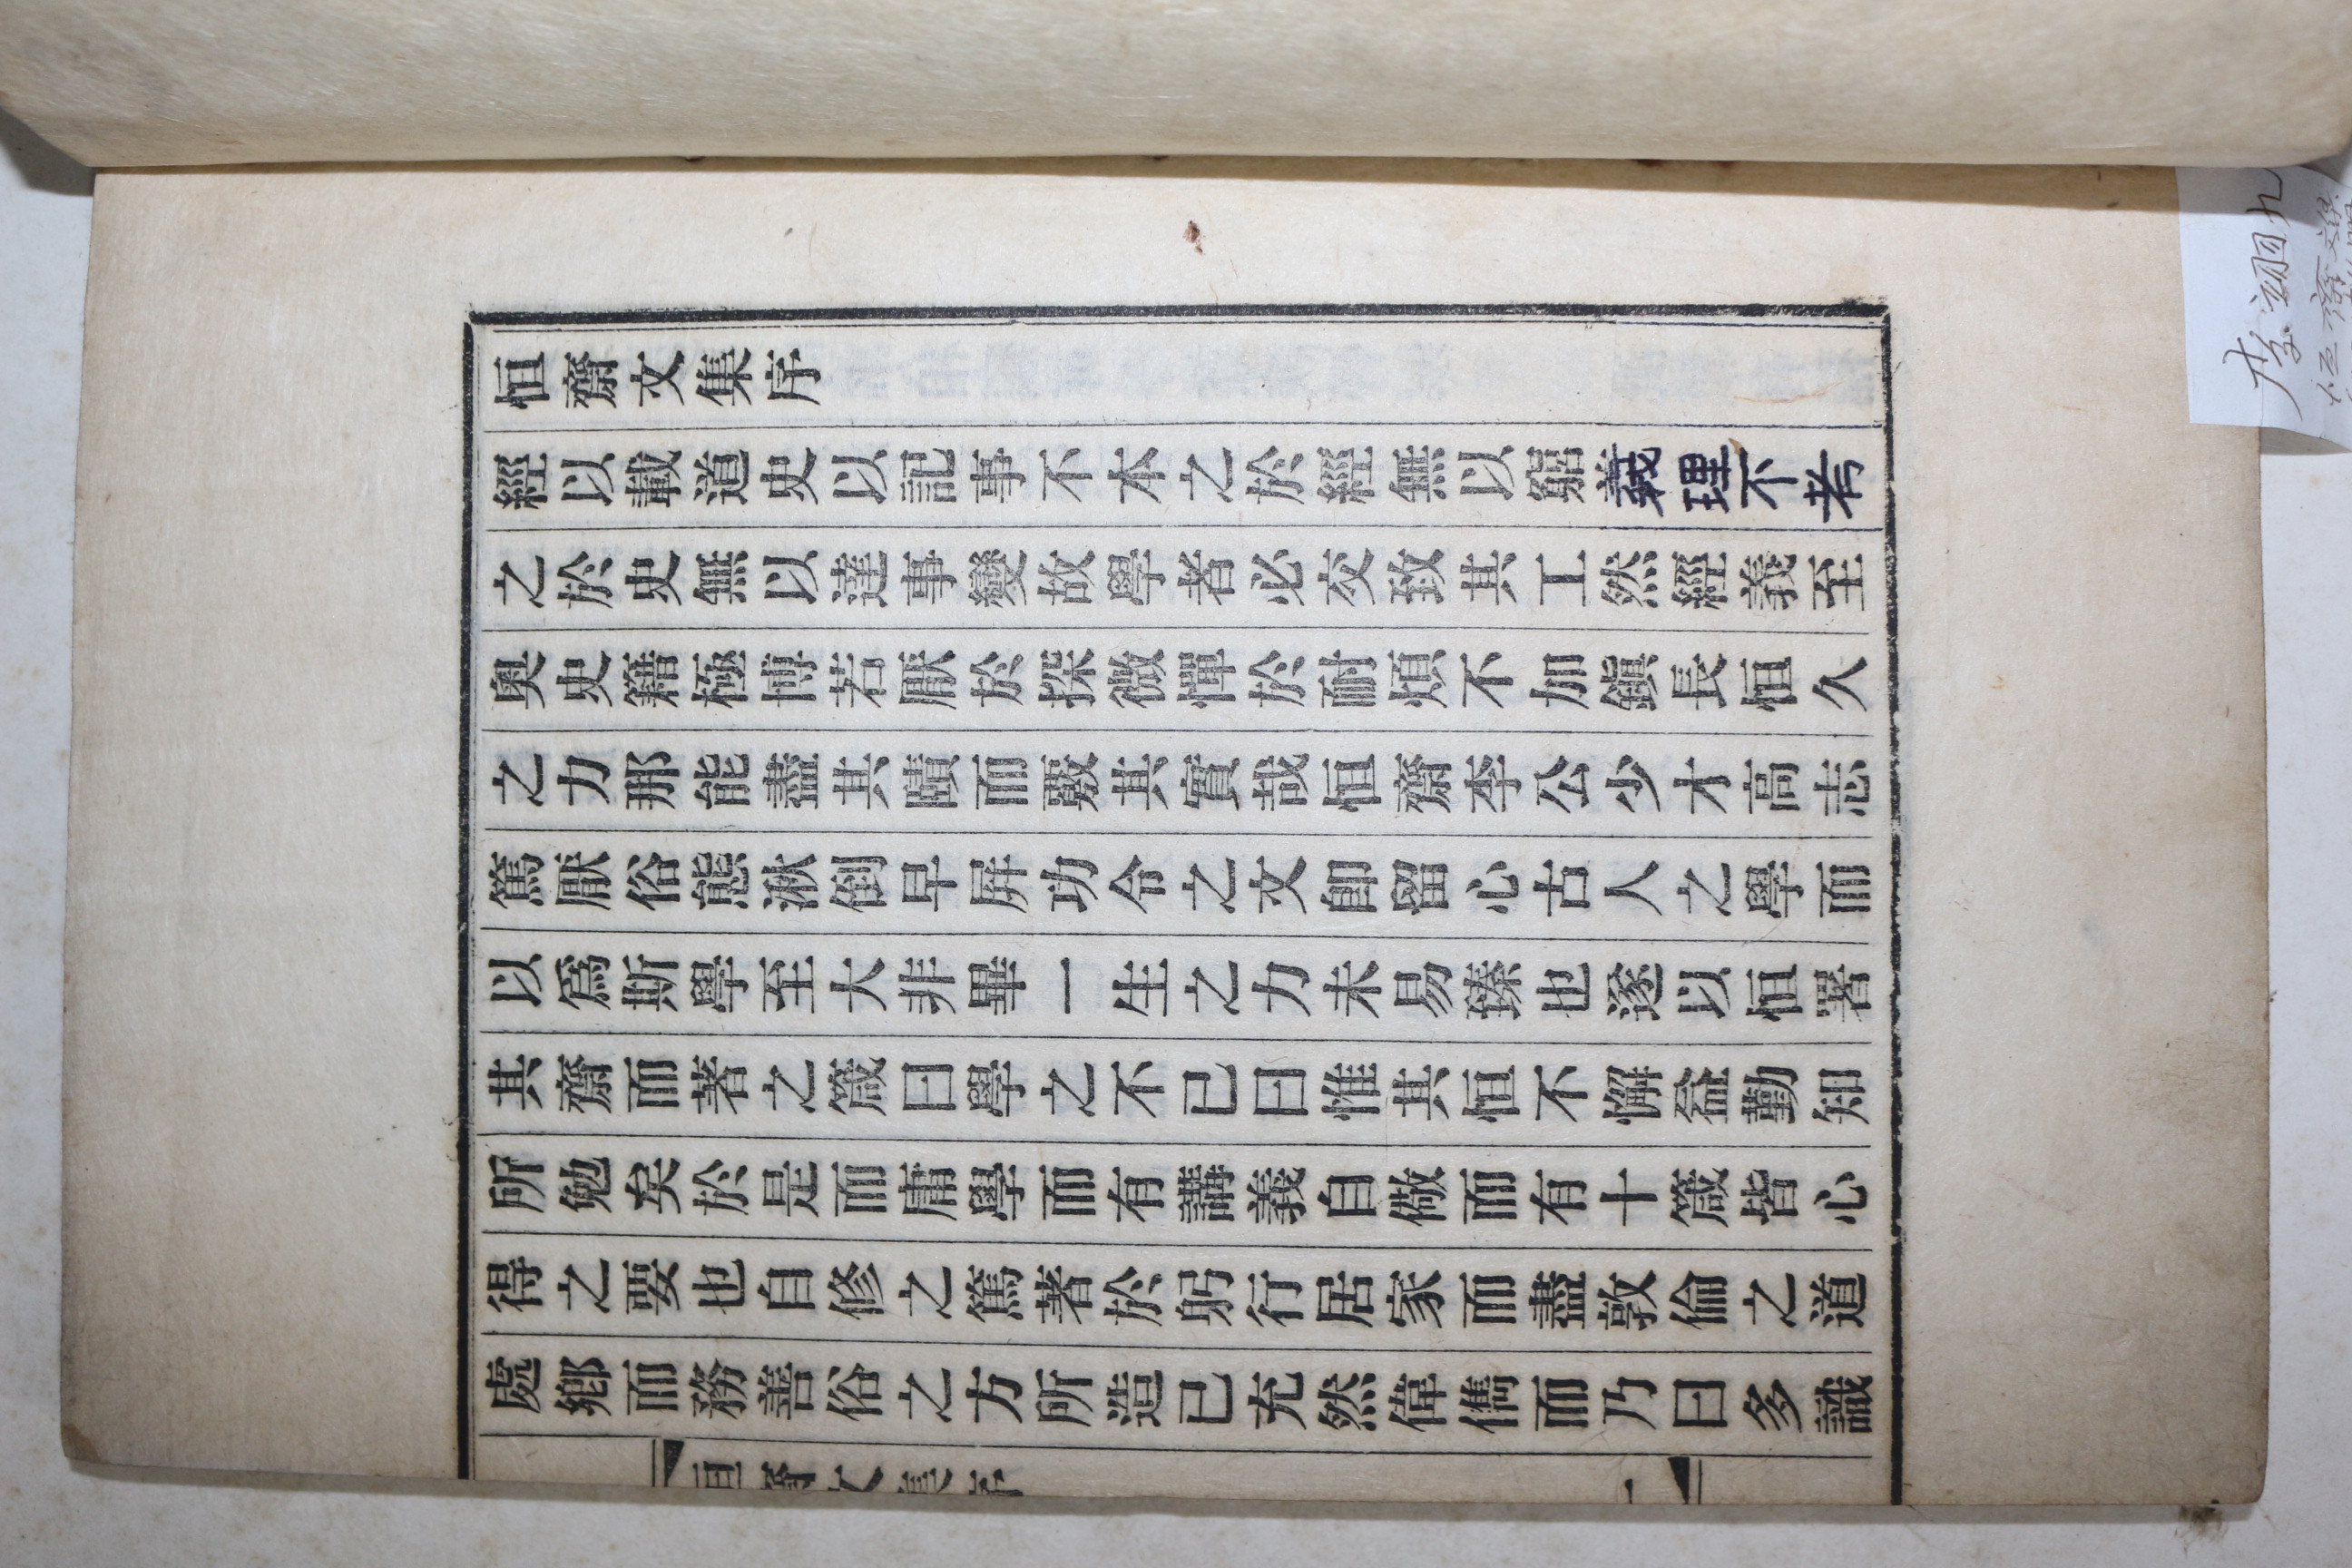 恒齋文集序
經以載道史以記事不本之於經無以窮義理不考
之於史無以達事變故學者必交致其工然經義至
奧史籍極博若厭於探微憚於耐煩不加鎭長恒久
之力那能盡其賾而覈其實哉恒齋李公少才高志
篤厭俗態湫倒早屛功令之文卽留心古人之學而
以爲斯學至大非畢一生之力未易臻也遂以恒署
其齋而著之箴曰學之不已曰惟其恒不懈益勤知
所勉矣於是而庸學而有講義自儆而有十箴皆心
得之要也自修之篤著於躬行居家而盡敦倫之道
處鄕而務善俗之方所造已充然偉儁而乃曰多識
恒齋文集序
一
李翊九
恒齋文集